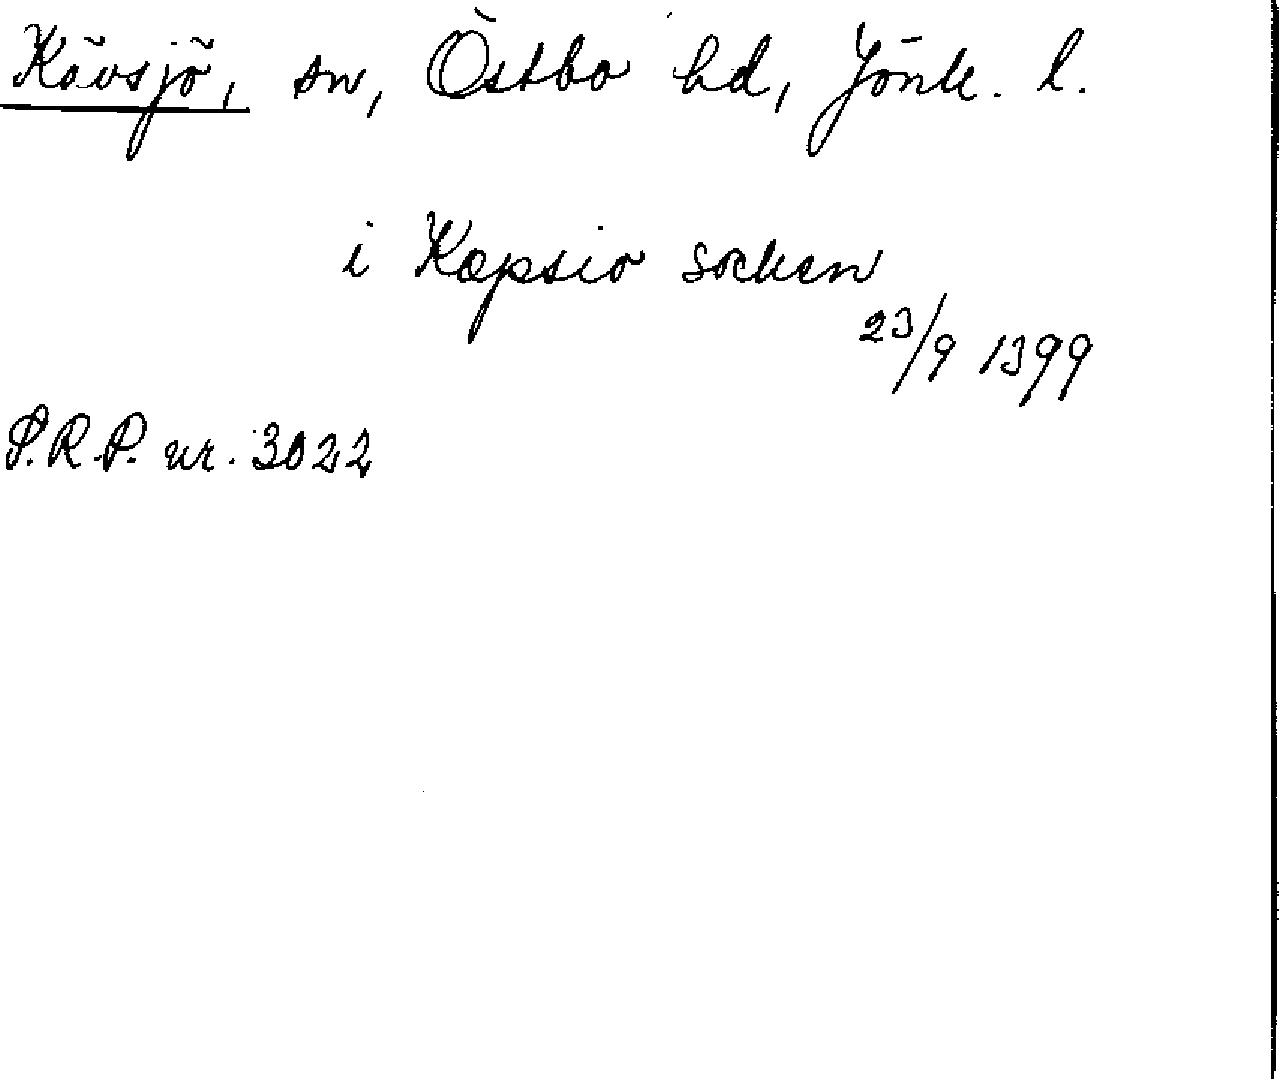 Kävsjö, sn, Östbo hd, Jönk. l.
i Kæpsio socken
23/9 1399
S.R.P. nr. 3022